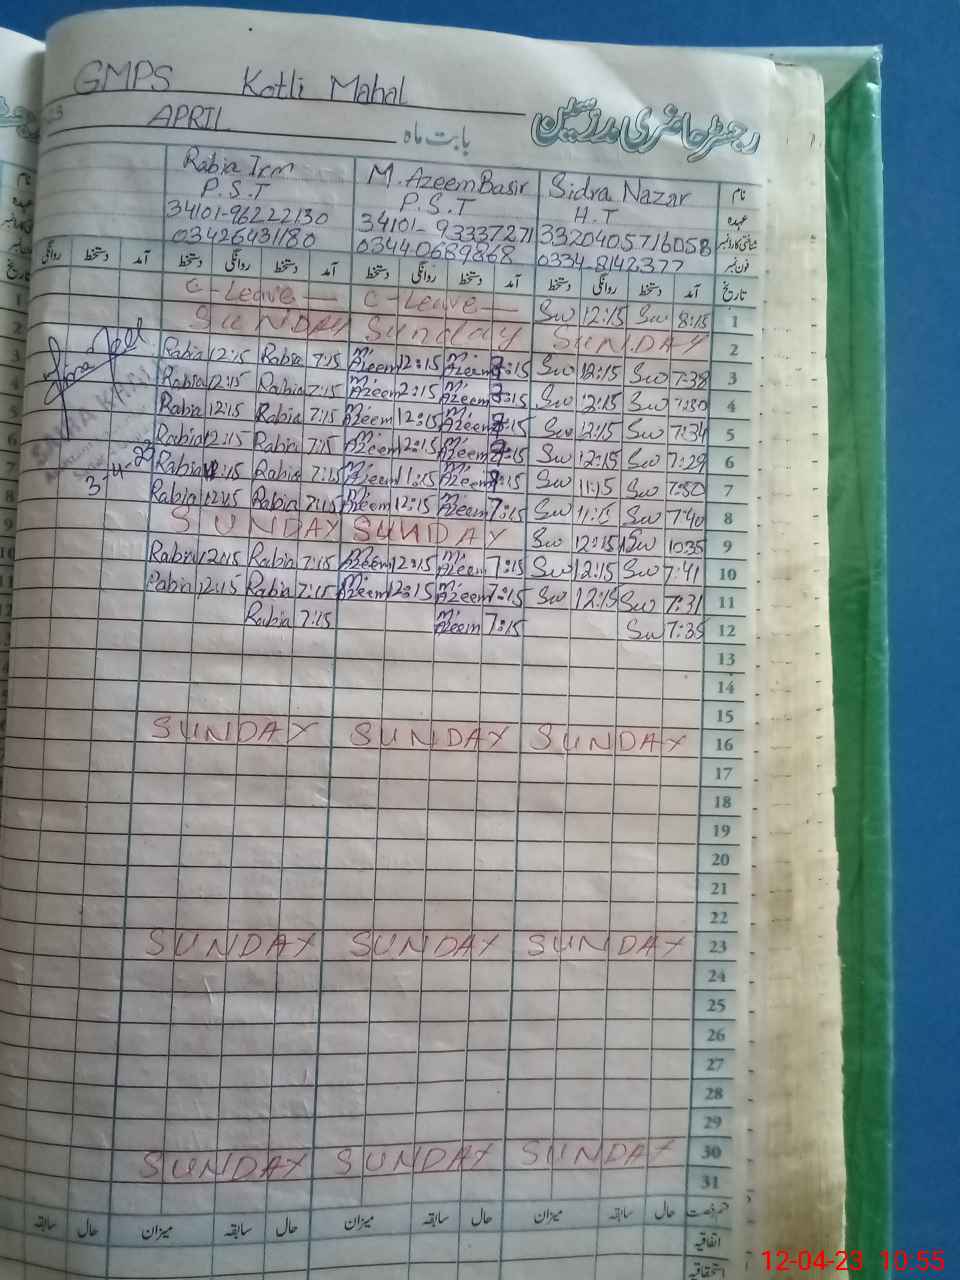 GMPS Kotli Mahal
رجسٹر حاضری مدرسین
APRIL بابت ماہ
نام Sidra Nazar M. Azeem Basir Rabia Irm
عہدہ H.T P.S.T P.S.T
شناختی کارڈ نمبر 3320405716058 34101-93337271 34101-96222130
فون نمبر 0334-8142377 03440689868 03426431180
تاریخ آمد دستخط روانگی دستخط آمد دستخط روانگی دستخط آمد دستخط روانگی دستخط آمد دستخط روانگی
1 8:15 Sw 12:15 Sw C-Leave C-Leave
2 SUNDAY Sunday SUNDAY
3 7:38 Sw 12:15 Sw 7:15 M. Azeem 12:15 M. Azeem 7:15 Rabia 12:15 Rabia
4 7:30 Sw 12:15 Sw 7:15 M. Azeem 12:15 M. Azeem 7:15 Rabia 12:15 Rabia
5 7:34 Sw 12:15 Sw 7:15 M. Azeem 12:15 M. Azeem 7:15 Rabia 12:15 Rabia
6 7:29 Sw 12:15 Sw 7:15 M. Azeem 12:15 M. Azeem 7:15 Rabia 12:15 Rabia
7 7:30 Sw 11:15 Sw 7:15 M. Azeem 11:15 M. Azeem 7:15 Rabia Rabia
8 7:40 Sw Sw 7:15 M. Azeem 12:15 M. Azeem 7:15 Rabia 12:15 Rabia
3-4-23
9 10:35 Sw 12:15 Sw SUNDAY SUNDAY
10 7:41 Sw 12:15 Sw 7:15 M. Azeem 12:15 M. Azeem 7:15 Rabia 12:15 Rabia
11 7:31 Sw 12:15 Sw 7:15 M. Azeem 12:15 M. Azeem 7:15 Rabia 12:15 Rabia
12 7:35 Sw 7:15 M. Azeem 7:15 Rabia
13
14
15
16 SUNDAY SUNDAY SUNDAY
17
18
19
20
21
22
23 SUNDAY SUNDAY SUNDAY
24
25
26
27
28
29
30 SUNDAY SUNDAY SUNDAY
31
حال سابقہ میزان حال سابقہ میزان حال سابقہ میزان حال سابقہ
اتفاقیہ
استحقاقیہ
12-04-23 10:55